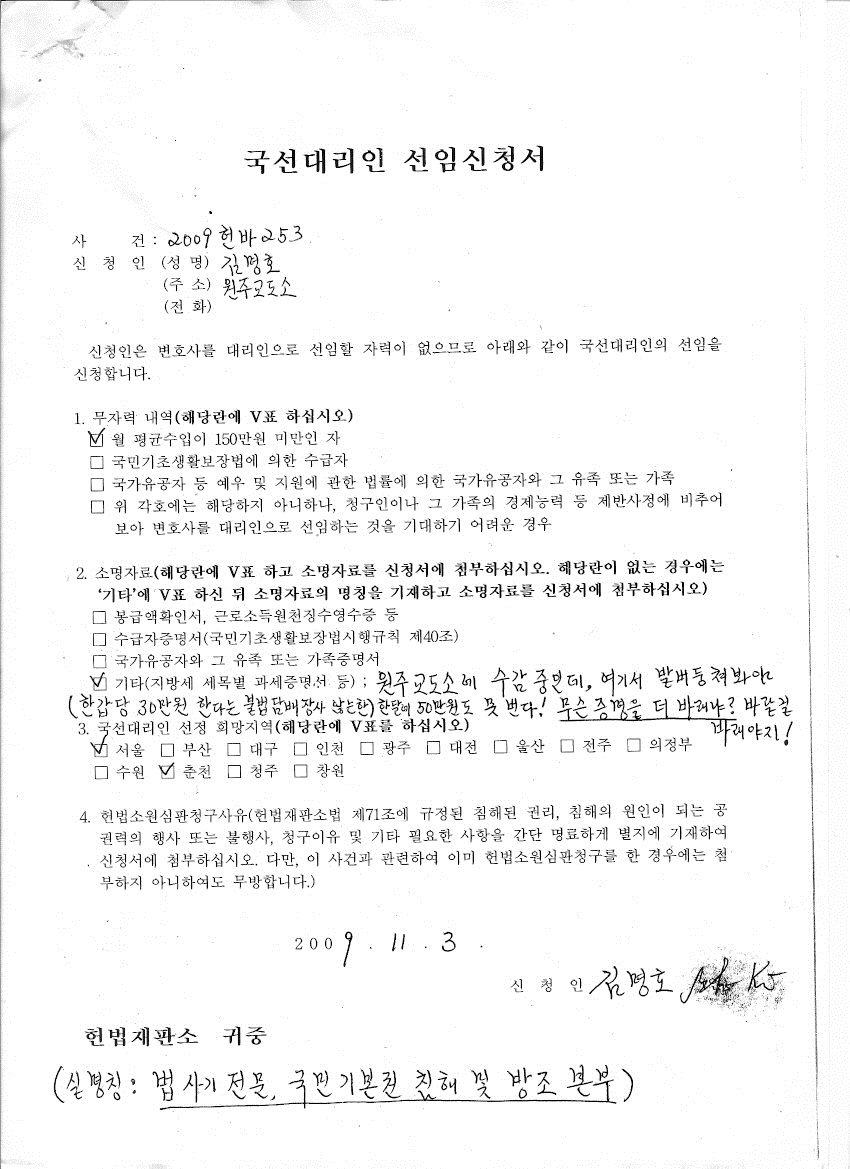 국선대리인 선임신청서
사 건 : 2009 헌바 253
신 청 인 (성 명) 김명호
(주 소) 원주교도소
(전 화)
신청인은 변호사를 대리인으로 선임할 자력이 없으므로 아래와 같이 국선대리인의 선임을
신청합니다.
1. 무자력 내역(해당란에 V표 하십시오)
☑ 월 평균수입이 150만원 미만인 자
□ 국민기초생활보장법에 의한 수급자
□ 국가유공자 등 예우 및 지원에 관한 법률에 의한 국가유공자와 그 유족 또는 가족
□ 위 각호에는 해당하지 아니하나, 청구인이나 그 가족의 경제능력 등 제반사정에 비추어
보아 변호사를 대리인으로 선임하는 것을 기대하기 어려운 경우
2. 소명자료(해당란에 V표 하고 소명자료를 신청서에 첨부하십시오. 해당란이 없는 경우에는
'기타'에 V표 하신 뒤 소명자료의 명칭을 기재하고 소명자료를 신청서에 첨부하십시오)
□ 봉급액확인서, 근로소득원천징수영수증 등
□ 수급자증명서(국민기초생활보장법시행규칙 제40조)
□ 국가유공자와 그 유족 또는 가족증명서
☑ 기타(지방세 세목별 과세증명서 등) ; 원주교도소에 수감 중인데, 여기서 발버둥쳐봐야
(한갑당 30만원 한다는 불법담배장사 않는한) 한달에 50만원도 못 번다! 무슨 증명을 더 바래냐? 바랄걸
바래야지!
3. 국선대리인 선정 희망지역(해당란에 V표를 하십시오)
☑ 서울 □ 부산 □ 대구 □ 인천 □ 광주 □ 대전 □ 울산 □ 전주 □ 의정부
□ 수원 ☑ 춘천 □ 청주 □ 창원
4. 헌법소원심판청구사유(헌법재판소법 제71조에 규정된 침해된 권리, 침해의 원인이 되는 공
권력의 행사 또는 불행사, 청구이유 및 기타 필요한 사항을 간단 명료하게 별지에 기재하여
신청서에 첨부하십시오. 다만, 이 사건과 관련하여 이미 헌법소원심판청구를 한 경우에는 첨
부하지 아니하여도 무방합니다.)
2009 . 11 . 3 .
신 청 인 김명호
헌법재판소 귀중
(실명칭 : 법사기전문, 국민기본권 침해 및 방조 본부)